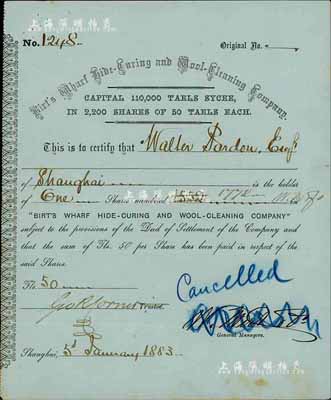 上海陽明拍賣
No. 1248
Original No.
Birt's Wharf Hide-Curing and Wool-Cleaning Company.
CAPITAL 110,000 TAELS SYCEE,
IN 2,200 SHARES OF 50 TAELS EACH.
This is to certify that Walter Pardon, Esq
of Shanghai is the holder
of One Shares numbered 1772
"BIRT'S WHARF HIDE-CURING AND WOOL-CLEANING COMPANY"
subject to the provisions of the Deed of Settlement of the Company and
that the sum of Tls. 50 per Share has been paid in respect of the
said Shares.
Tls. 50
Cancelled
General Managers.
Shanghai, 5th January 1883